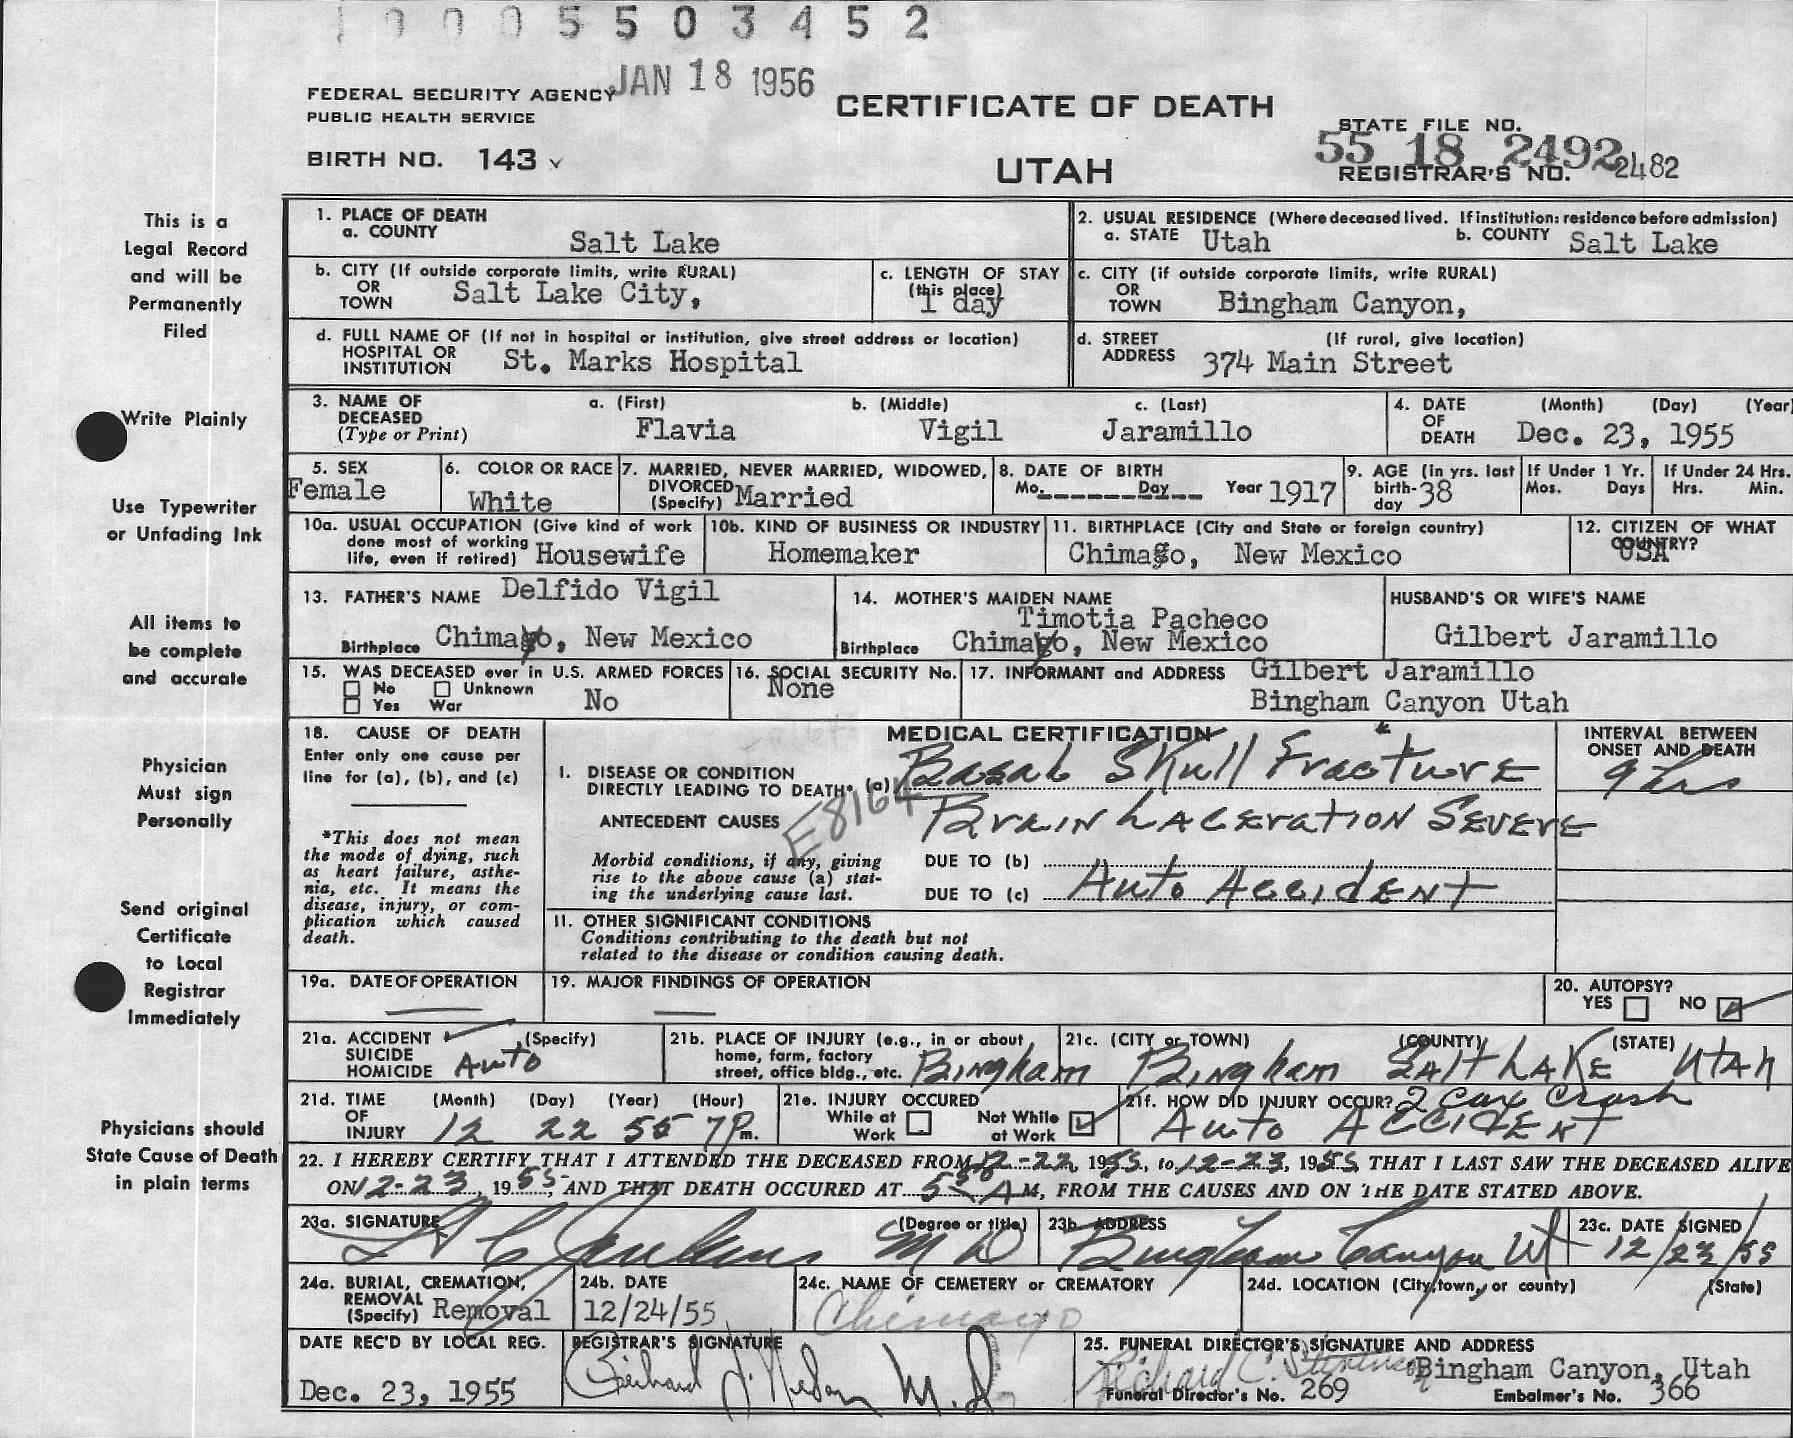 1 0 0 0 5 5 0 3 4 5 2
JAN 18 1956
FEDERAL SECURITY AGENCY
PUBLIC HEALTH SERVICE
BIRTH NO. 143
CERTIFICATE OF DEATH
UTAH
STATE FILE NO.
55 18 2492
REGISTRAR'S NO. 2482
This is a
Legal Record
and will be
Permanently
Filed
Write Plainly
Use Typewriter
or Unfading Ink
All items to
be complete
and accurate
Physician
Must sign
Personally
Send original
Certificate
to Local
Registrar
Immediately
Physicians should
State Cause of Death
in plain terms
1. PLACE OF DEATH
a. COUNTY Salt Lake
2. USUAL RESIDENCE (Where deceased lived. If institution: residence before admission)
a. STATE Utah b. COUNTY Salt Lake
b. CITY (If outside corporate limits, write RURAL)
OR
TOWN Salt Lake City,
c. LENGTH OF STAY
(this place)
1 day
c. CITY (if outside corporate limits, write RURAL)
OR
TOWN Bingham Canyon,
d. FULL NAME OF (If not in hospital or institution, give street address or location)
HOSPITAL OR
INSTITUTION St. Marks Hospital
d. STREET (If rural, give location)
ADDRESS 374 Main Street
3. NAME OF a. (First) b. (Middle) c. (Last)
DECEASED
(Type or Print) Flavia Vigil Jaramillo
4. DATE (Month) (Day) (Year)
OF
DEATH Dec. 23, 1955
5. SEX
Female
6. COLOR OR RACE
White
7. MARRIED, NEVER MARRIED, WIDOWED,
DIVORCED
(Specify) Married
8. DATE OF BIRTH
Mo. Day Year 1917
9. AGE (In yrs. last
birth-
day 38
If Under 1 Yr.
Mos. Days
If Under 24 Hrs.
Hrs. Min.
10a. USUAL OCCUPATION (Give kind of work
done most of working
life, even if retired) Housewife
10b. KIND OF BUSINESS OR INDUSTRY
Homemaker
11. BIRTHPLACE (City and State or foreign country)
Chimago, New Mexico
12. CITIZEN OF WHAT
COUNTRY?
USA
13. FATHER'S NAME Delfido Vigil
Birthplace Chimayo, New Mexico
14. MOTHER'S MAIDEN NAME
Timotia Pacheco
Birthplace Chimayo, New Mexico
HUSBAND'S OR WIFE'S NAME
Gilbert Jaramillo
15. WAS DECEASED ever in U.S. ARMED FORCES
No Unknown
Yes War No
16. SOCIAL SECURITY No.
None
17. INFORMANT and ADDRESS Gilbert Jaramillo
Bingham Canyon Utah
18. CAUSE OF DEATH
Enter only one cause per
line for (a), (b), and (c)
*This does not mean
the mode of dying, such
as heart failure, asthe-
nia, etc. It means the
disease, injury, or com-
plication which caused
death.
MEDICAL CERTIFICATION
INTERVAL BETWEEN
ONSET AND DEATH
I. DISEASE OR CONDITION
DIRECTLY LEADING TO DEATH* (a) Basal Skull Fracture 9 hrs
E8164
ANTECEDENT CAUSES Brain Laceration Severe
Morbid conditions, if any, giving
rise to the above cause (a) stat-
ing the underlying cause last.
DUE TO (b)
DUE TO (c) Auto Accident
II. OTHER SIGNIFICANT CONDITIONS
Conditions contributing to the death but not
related to the disease or condition causing death.
19a. DATE OF OPERATION
19. MAJOR FINDINGS OF OPERATION
20. AUTOPSY?
YES NO
21a. ACCIDENT (Specify)
SUICIDE
HOMICIDE Auto
21b. PLACE OF INJURY (e.g., in or about
home, farm, factory
street, office bldg., etc. Bingham
21c. (CITY or TOWN) (COUNTY) (STATE)
Bingham Salt Lake Utah
21d. TIME (Month) (Day) (Year) (Hour)
OF
INJURY 12 22 55 7 P m.
21e. INJURY OCCURED
While at Work Not While at Work
21f. HOW DID INJURY OCCUR? 2 Car Crash
Auto Accident
22. I HEREBY CERTIFY THAT I ATTENDED THE DECEASED FROM 12-22, 1955, to 12-23, 1955, THAT I LAST SAW THE DECEASED ALIVE
ON 12-23, 1955, AND THAT DEATH OCCURED AT 5 50 A M, FROM THE CAUSES AND ON THE DATE STATED ABOVE.
23a. SIGNATURE (Degree or title)
Jenkins MD
23b. ADDRESS
Bingham Canyon Ut
23c. DATE SIGNED
12/23/55
24a. BURIAL, CREMATION,
REMOVAL
(Specify) Removal
24b. DATE
12/24/55
24c. NAME OF CEMETERY or CREMATORY
Chimayo
24d. LOCATION (City, town, or county) (State)
DATE REC'D BY LOCAL REG.
Dec. 23, 1955
REGISTRAR'S SIGNATURE
M.D.
25. FUNERAL DIRECTOR'S SIGNATURE AND ADDRESS
Richard C. Bingham Canyon, Utah
Funeral Director's No. 269 Embalmer's No. 366